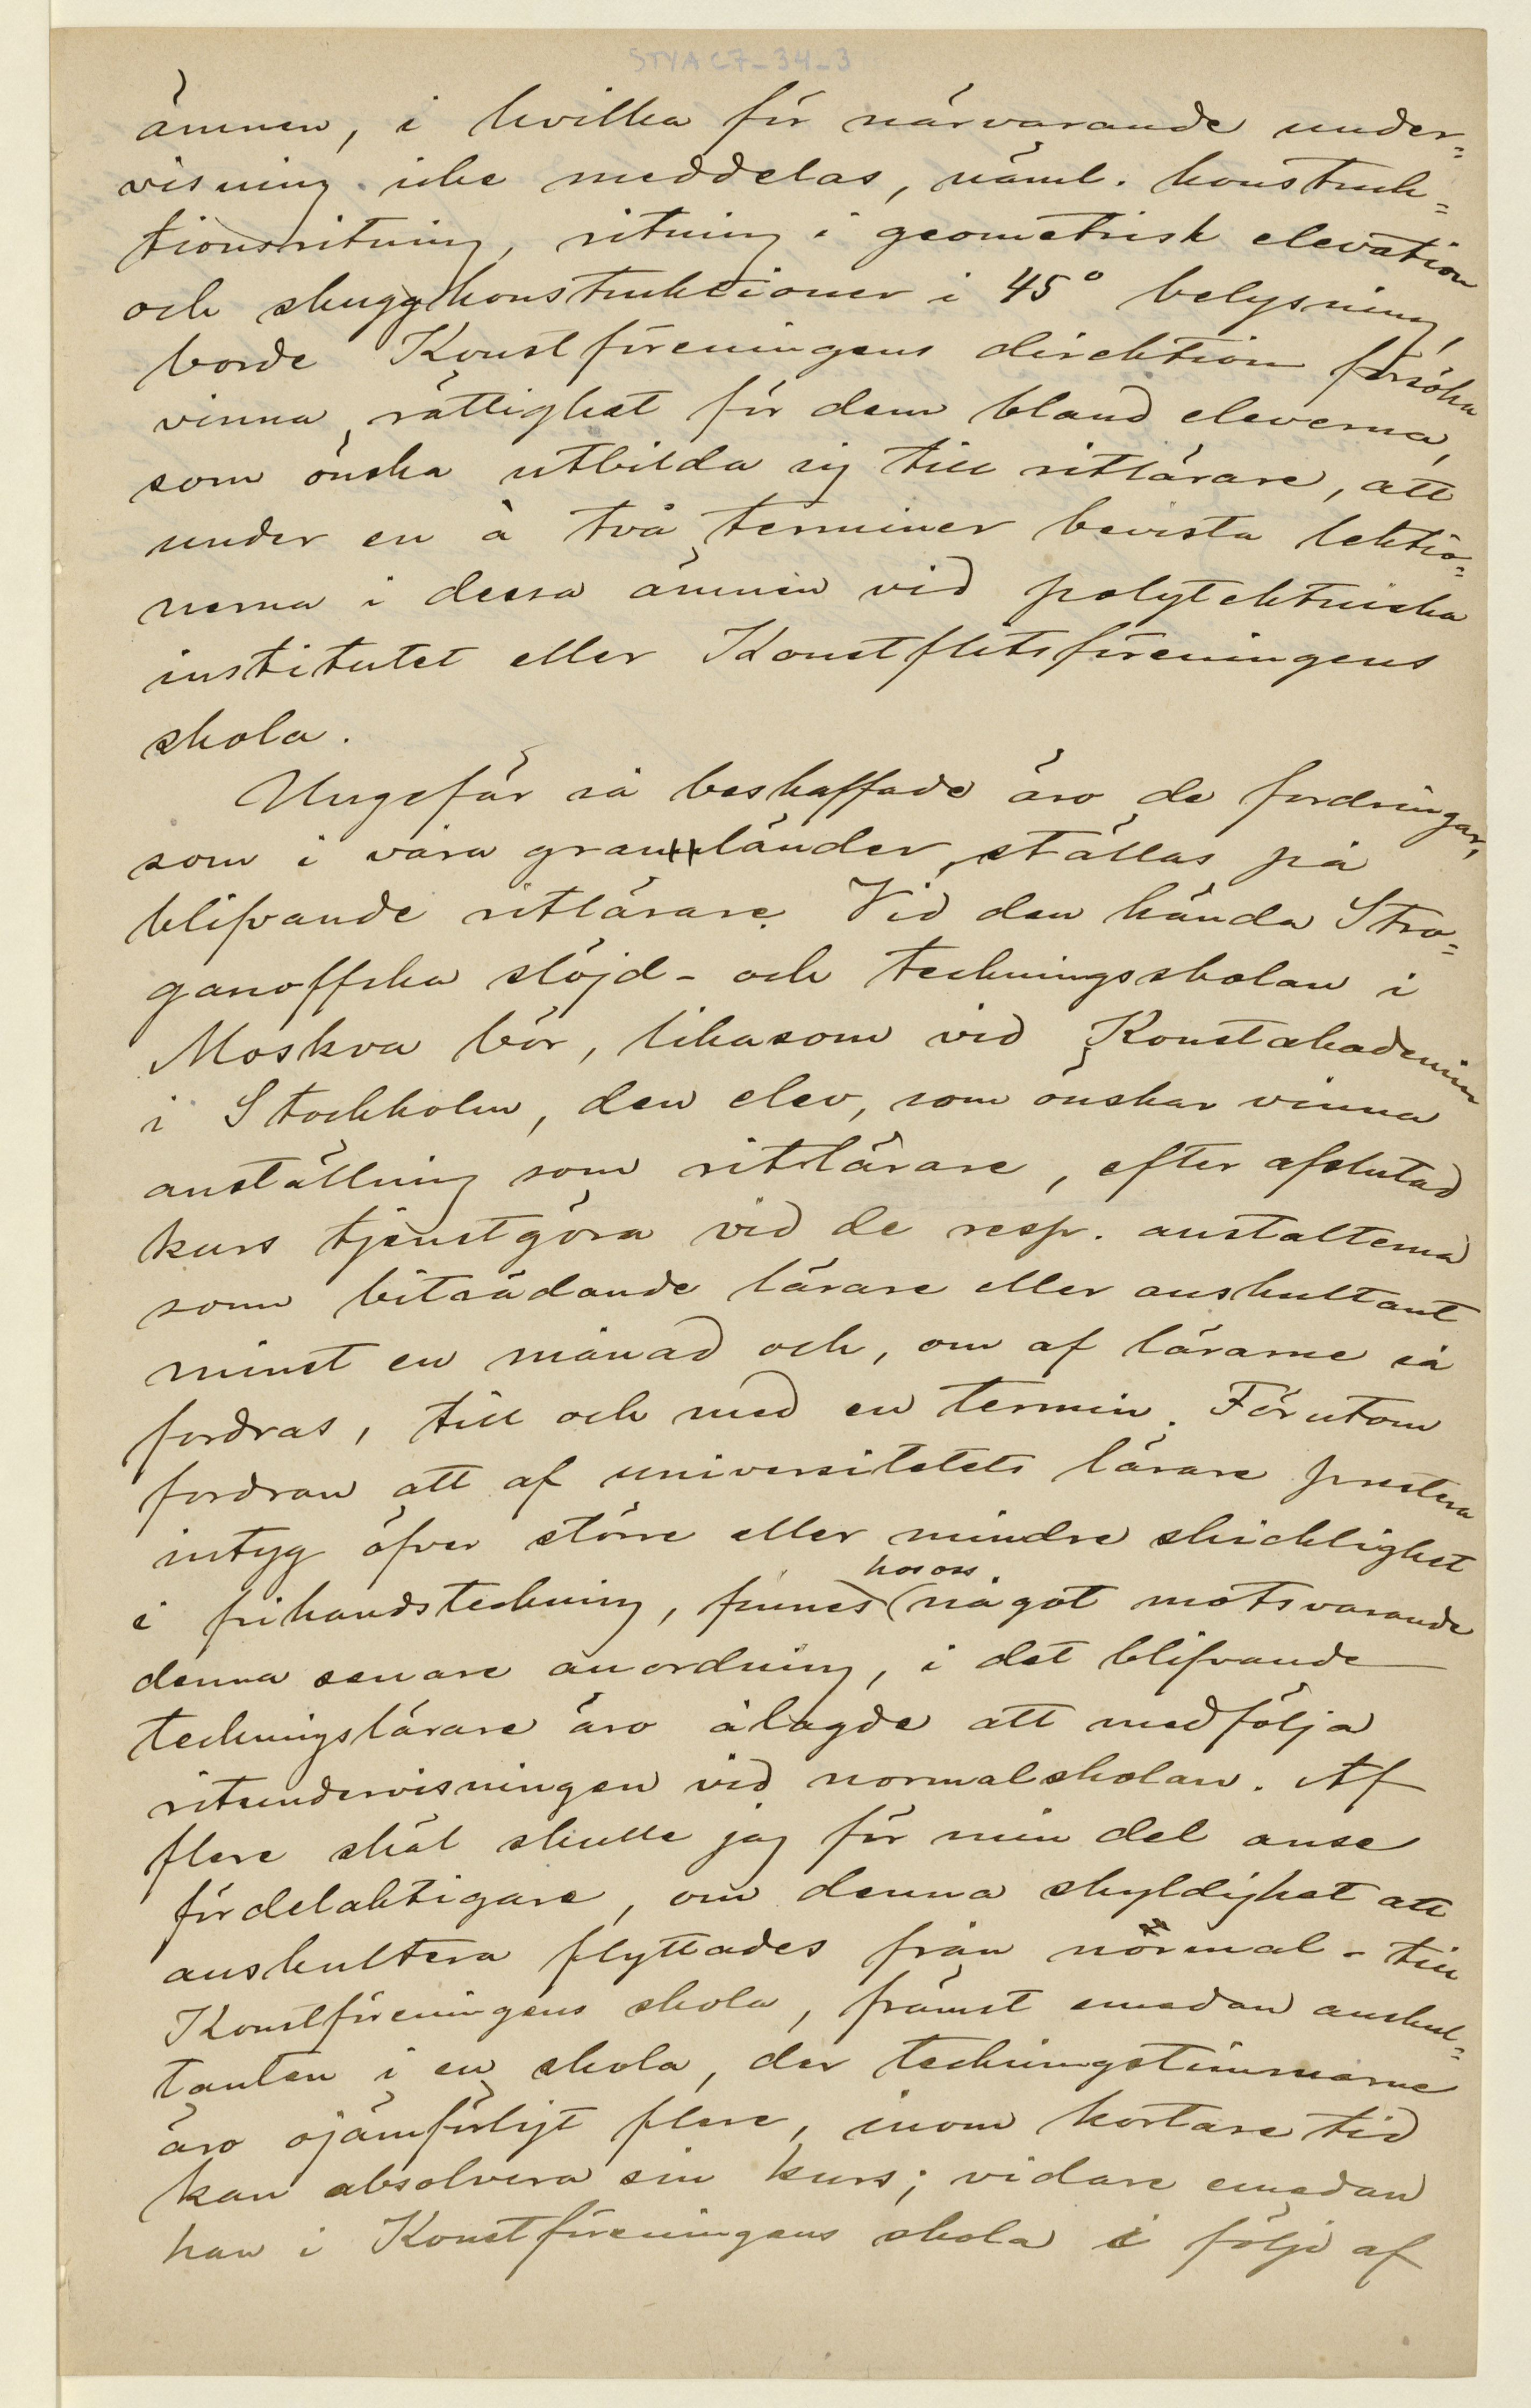 STYAC7-34-3
ämnen, i hvilka för närvarande under=
visning icke meddelas, näml. konstruk=
tionsritning, ritning i geometrisk elevation
och skuggkonstruktioner i 45° belysning,
borde Konstföreningens direktion försöka
vinna rättighet för dem bland eleverna,
som önska utbilda sig till ritlärare, att
under en à två terminer bevista lektio=
nerna i dessa ämnen vid polytekniska
institutet eller Konstflitsföreningens
skola.
Ungefär så beskaffade äro de fordringar,
som i våra grannländer ställas på
blifvande ritlärare. Vid den kända Stro=
ganoffska slöjd- och teckningsskolan i
Moskva bör, likasom vid Konstakademin
i Stockholm, den elev, som önskar vinna
anställning som ritlärare, efter afslutad
kurs tjenstgöra vid de resp. anstalterna
som biträdande lärare eller auskultant
minst en månad och, om af lärarne så
fordras, till och med en termin. Förutom
fordran att af universitetets lärare prestera
intyg öfver större eller mindre skicklighet
hos oss
i frihandsteckning, finnes (något motsvarande
denna senare anordning, i det blifvande
teckningslärare äro ålagde att medfölja
ritundervisningen vid normalskolan. Af
flere skäl skulle jag för min del anse
fördelaktigare, om denna skyldighet att
auskultera flyttades från normal- till
Konstföreningens skola, främst emedan auskul=
tanten i en skola, der teckningstimmarne
äro ojämförligt flere, inom kortare tid
kan absolvera sin kurs; vidare emedan
han i Konstföreningens skola i följd af